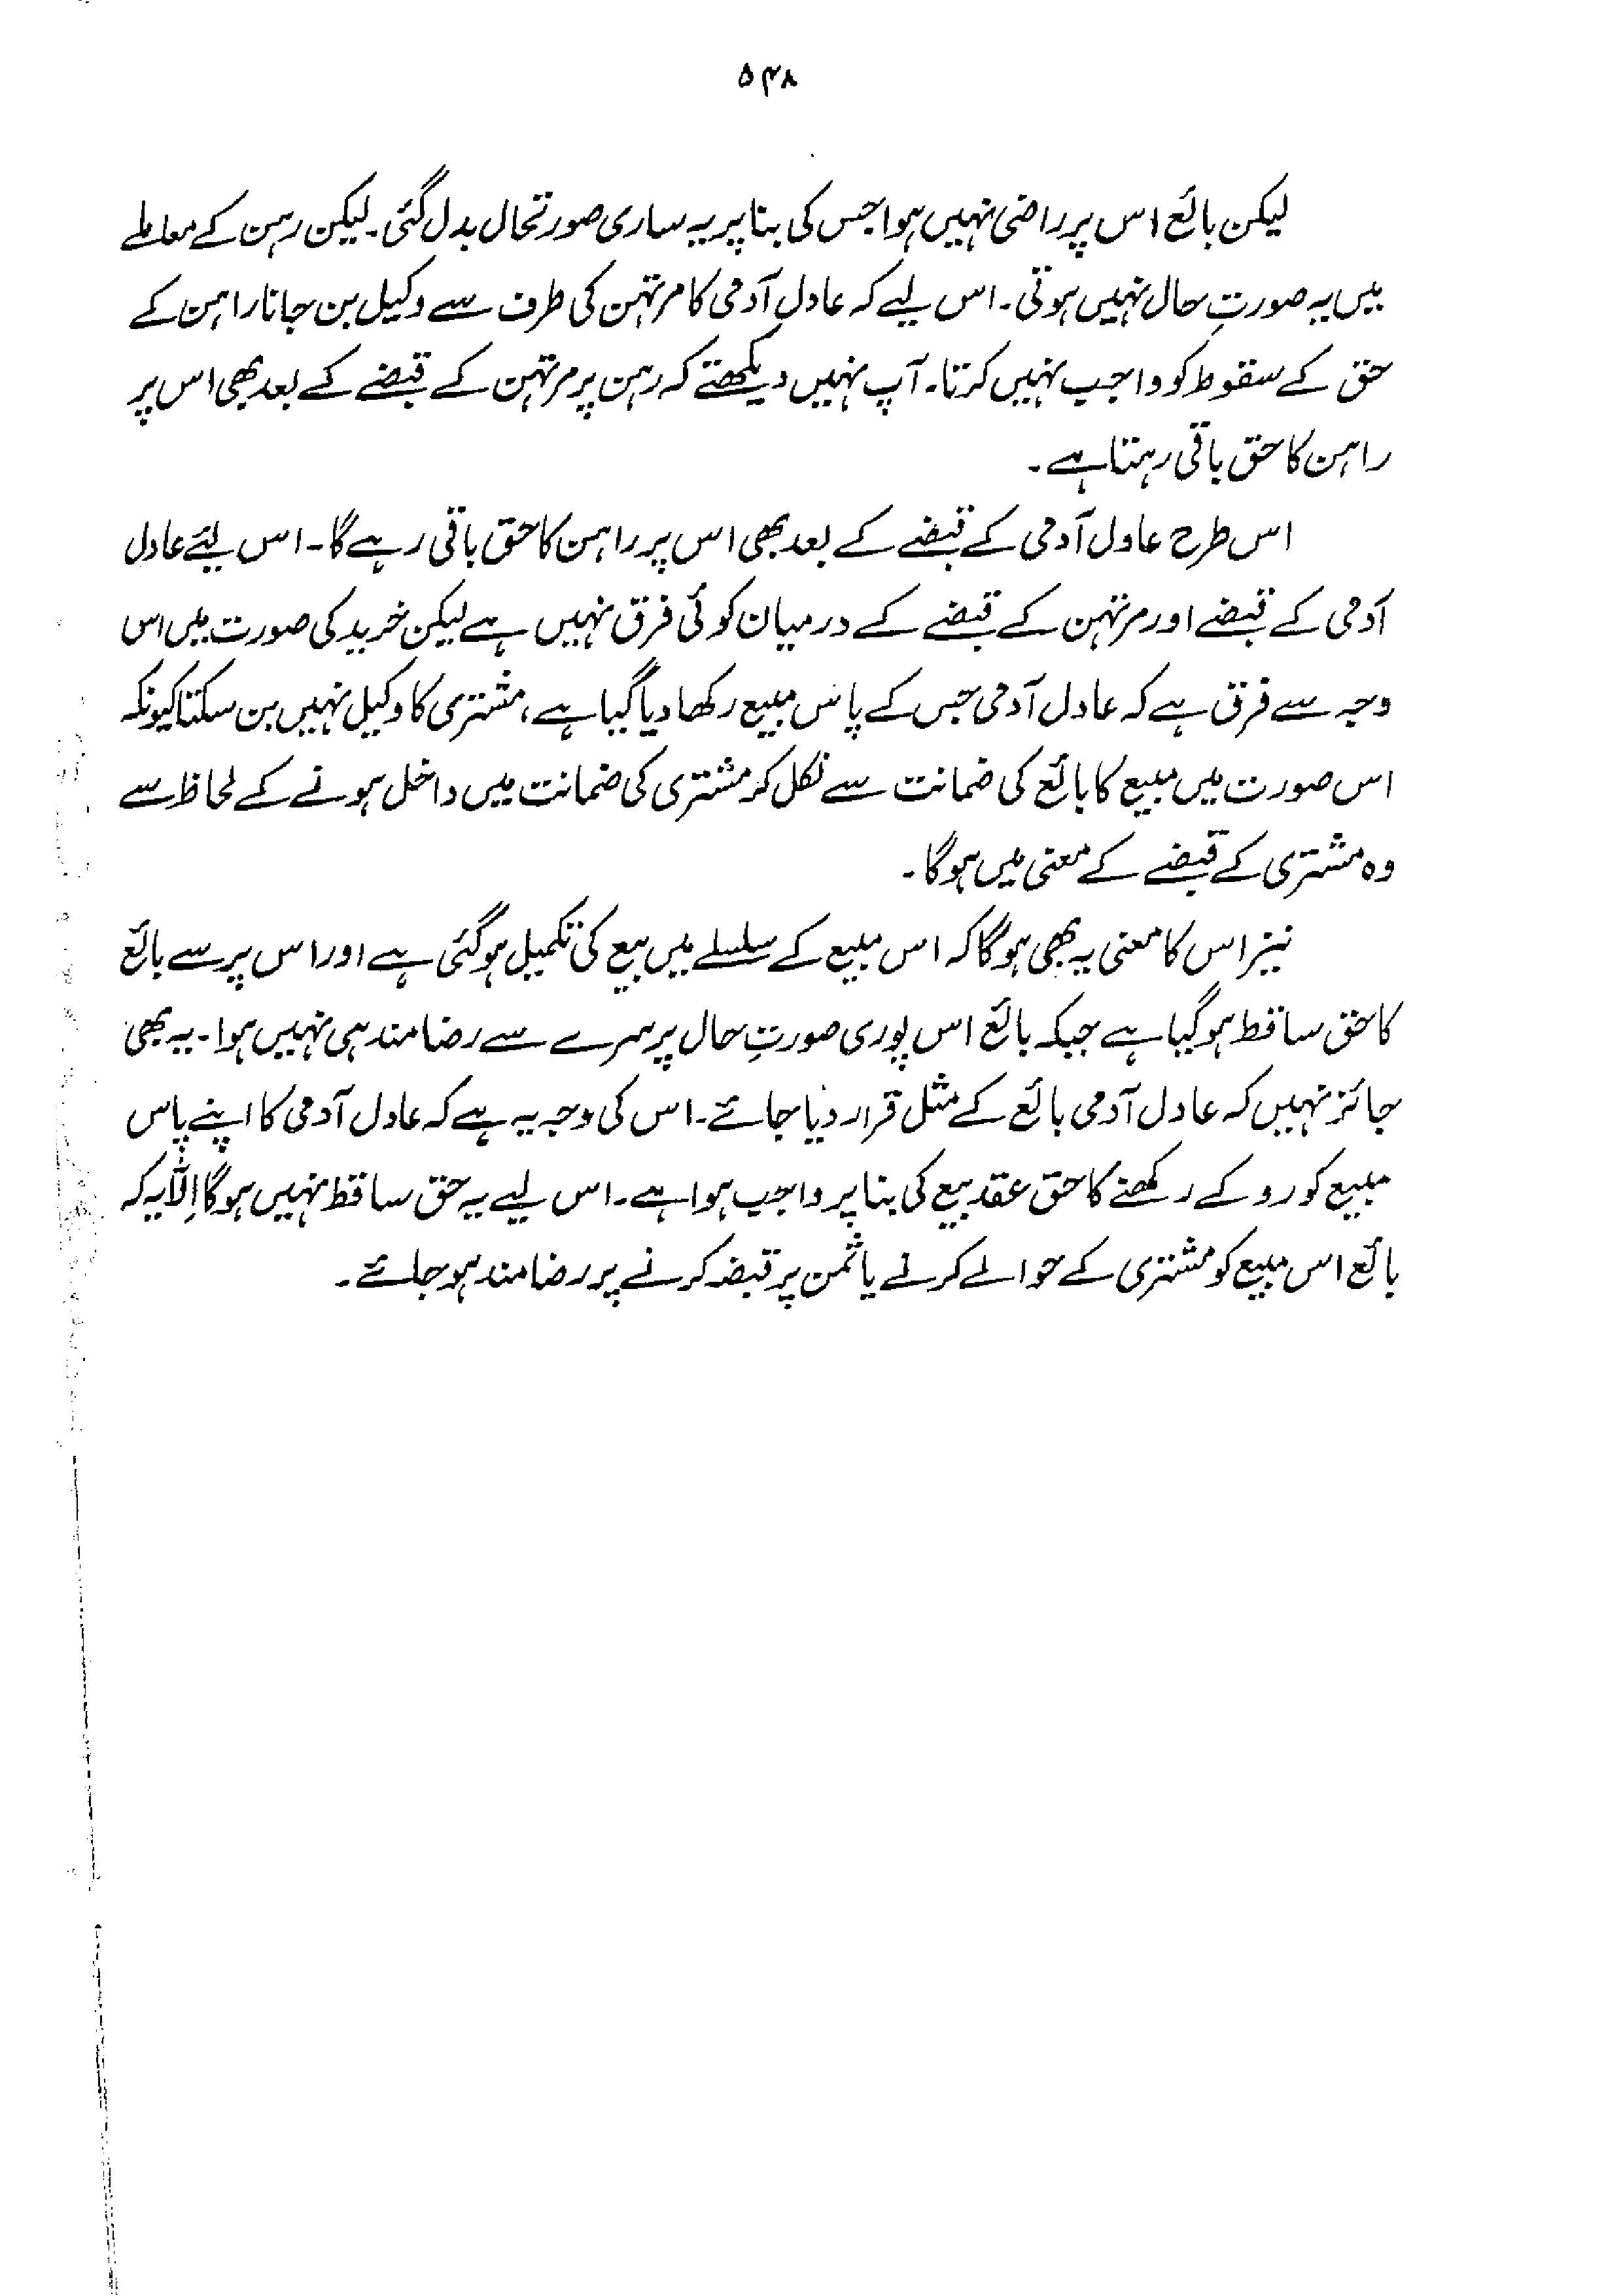 ۵۴۸
لیکن بائع اس پر راضی نہیں ہوا جس کی بنا پر یہ ساری صورتحال بدل گئی۔ لیکن رہن کے معاملے
میں یہ صورتِ حال نہیں ہوتی۔ اس لیے کہ عادل آدمی کا مرتہن کی طرف سے وکیل بن جانا راہن کے
حق کے سقوط کو واجب نہیں کرتا۔ آپ نہیں دیکھتے کہ رہن پر مرتہن کے قبضے کے بعد بھی اس پر
راہن کا حق باقی رہتا ہے۔
اس طرح عادل آدمی کے قبضے کے بعد بھی اس پر راہن کا حق باقی رہے گا۔ اس لیئے عادل
آدمی کے قبضے اور مرتہن کے قبضے کے درمیان کوئی فرق نہیں ہے لیکن خرید کی صورت میں اس
وجہ سے فرق ہے کہ عادل آدمی جس کے پاس مبیع رکھا دیا گیا ہے، مشتری کا وکیل نہیں بن سکتا کیونکہ
اس صورت میں مبیع کا بائع کی ضمانت سے نکل کر مشتری کی ضمانت میں داخل ہونے کے لحاظ سے
وہ مشتری کے قبضے کے معنی میں ہوگا۔
نیز اس کا معنی یہ بھی ہوگا کہ اس مبیع کے سلسلے میں بیع کی تکمیل ہوگئی ہے اور اس پر سے بائع
کا حق ساقط ہوگیا ہے جبکہ بائع اس پوری صورتِ حال پر سرے سے رضامند ہی نہیں ہوا۔ یہ بھی
جائز نہیں کہ عادل آدمی بائع کے مثل قرار دیا جائے۔ اس کی وجہ یہ ہے کہ عادل آدمی کا اپنے پاس
مبیع کو روکے رکھنے کا حق عقد بیع کی بنا پر واجب ہوا ہے۔ اس لیے یہ حق ساقط نہیں ہوگا اِلّا یہ کہ
بائع اس مبیع کو مشتری کے حوالے کرنے یا ثمن پر قبضہ کرنے پر رضامند ہو جائے۔